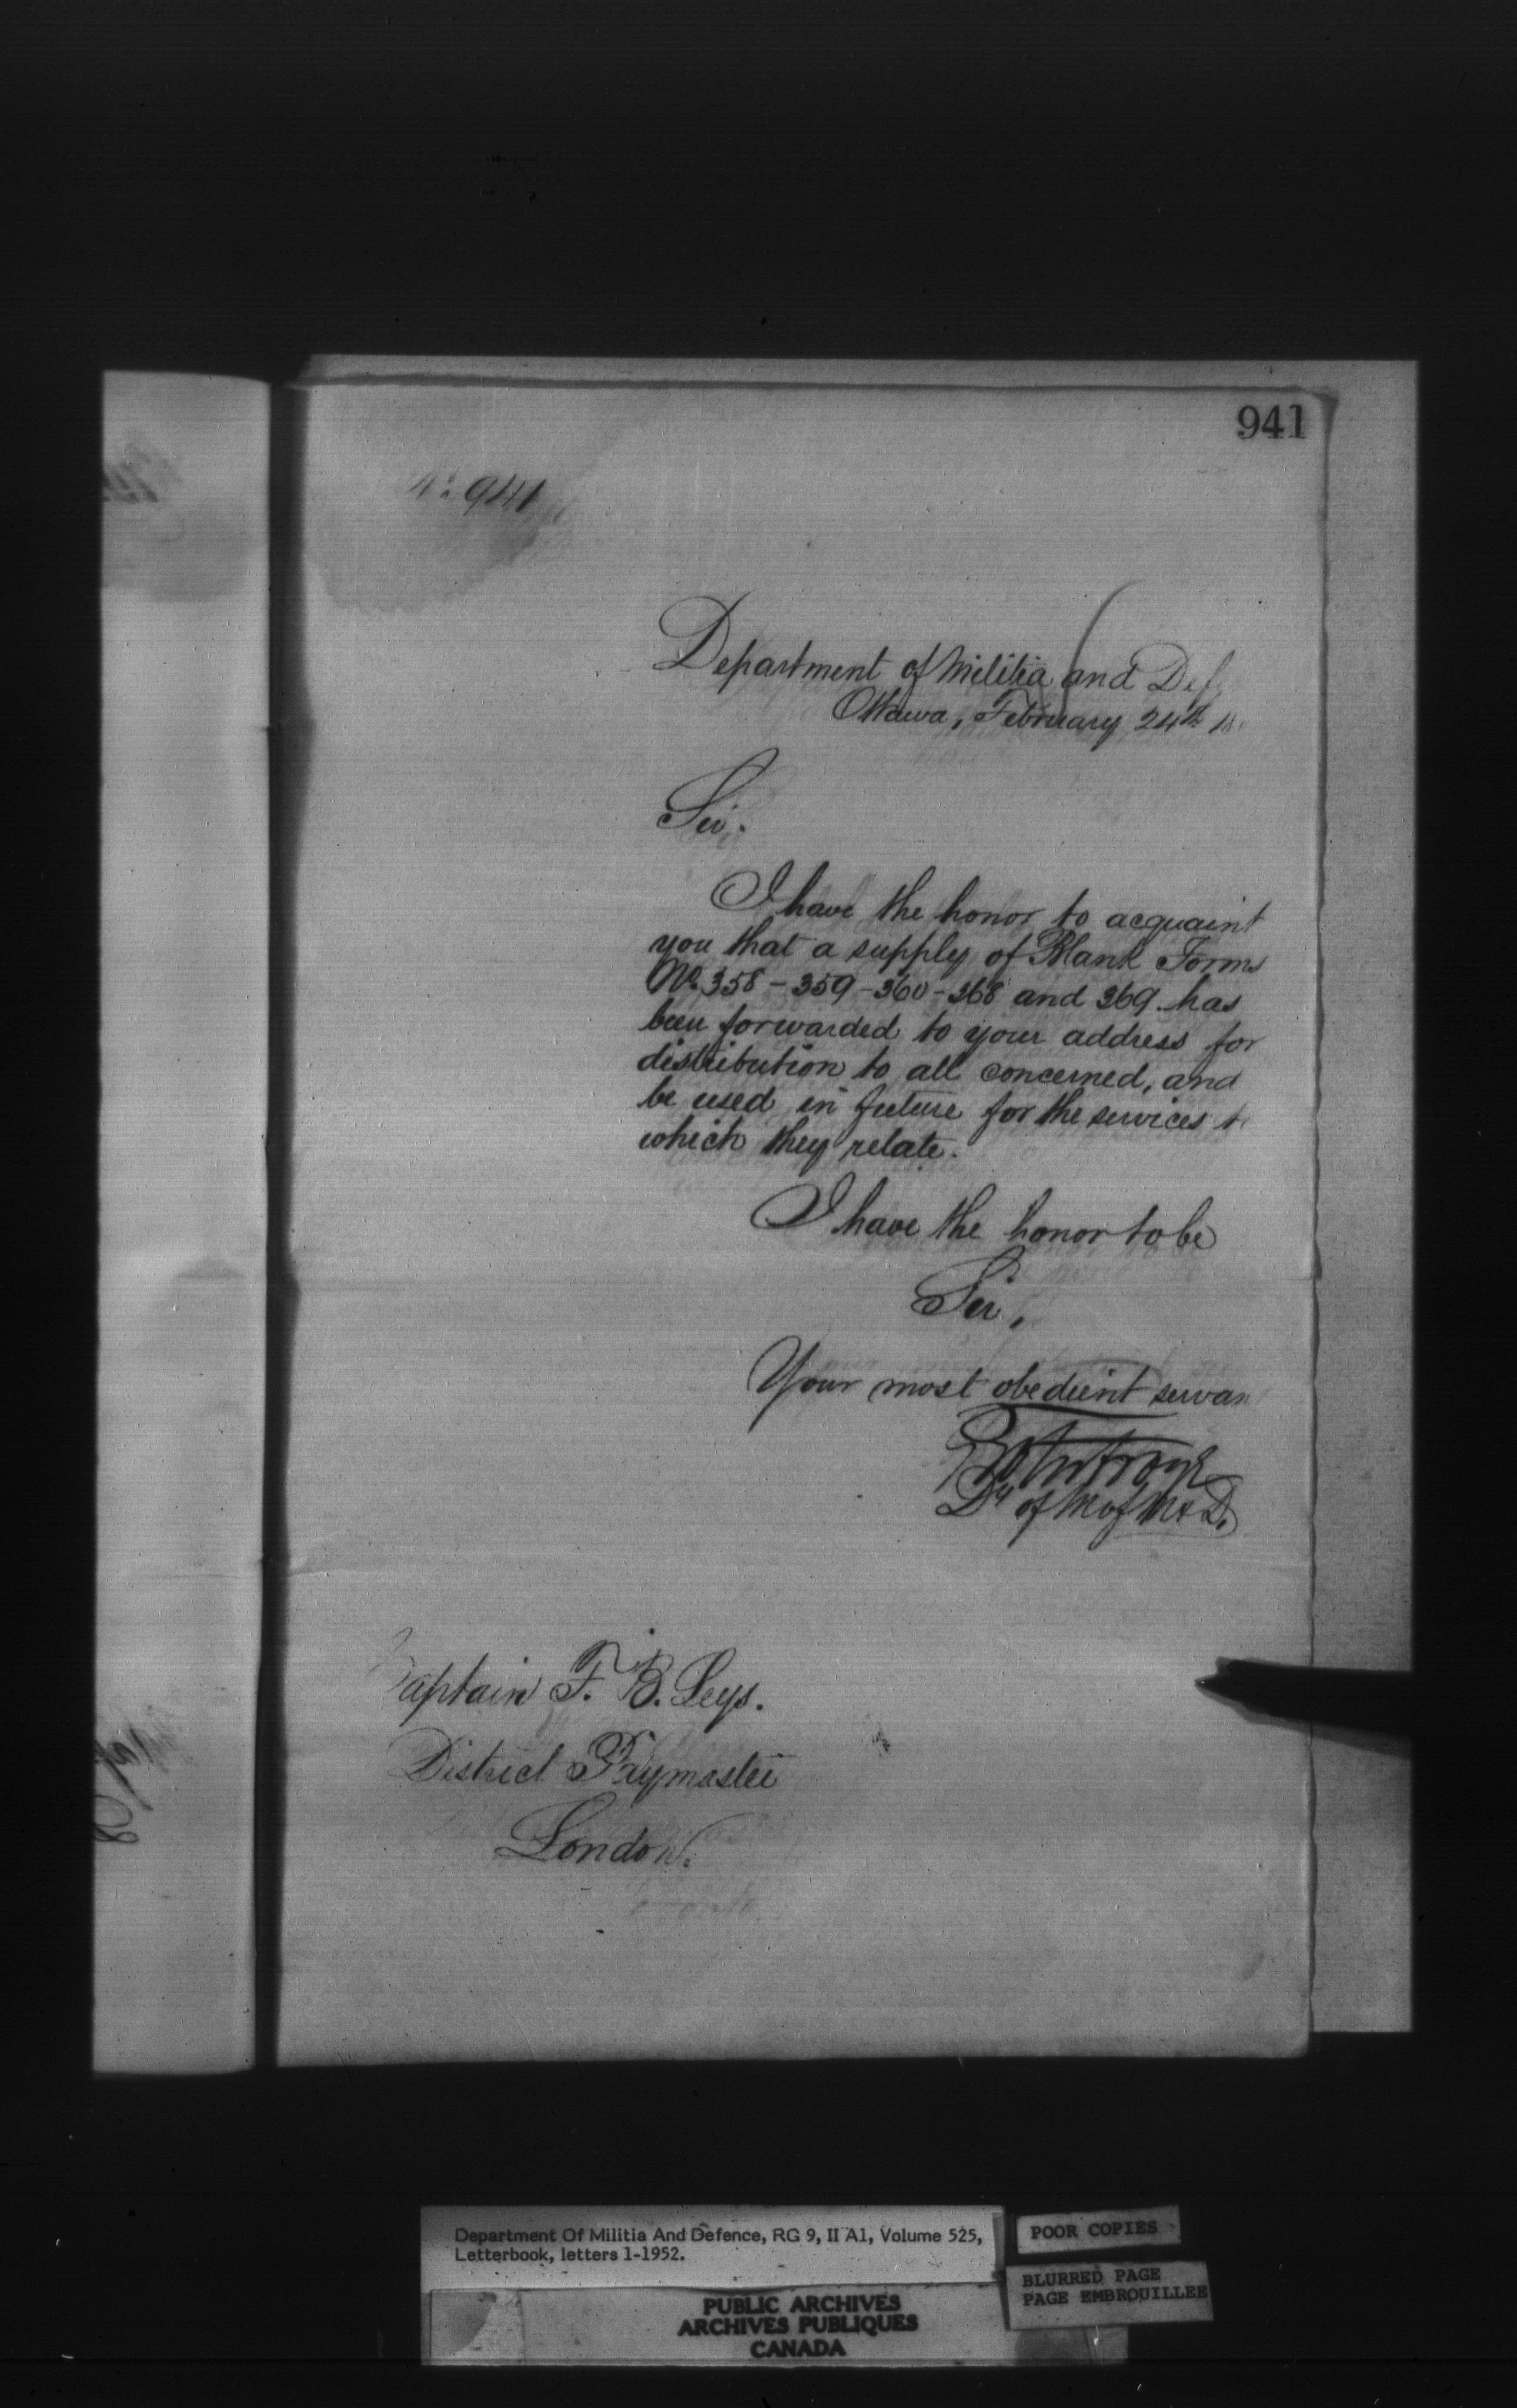 941
No 941
Department of Militia and Def
Ottawa, February 24th 18
Sir.
I have the honor to acquaint
you that a supply of Blank Forms
No. 358 - 359 - 360 - 368 and 369 has
been forwarded to your address for
distribution to all concerned, and
be used in future for the services to
which they relate.
I have the honor to be
Sir,
Your most obedient servan
Dy of M of M & D.
Captain F. B. Leys.
District Paymaster
London.
Department Of Militia And Defence, RG 9, II A1, Volume 525,
Letterbook, letters 1-1952.
POOR COPIES
BLURRED PAGE
PAGE EMBROUILLEE
PUBLIC ARCHIVES
ARCHIVES PUBLIQUES
CANADA